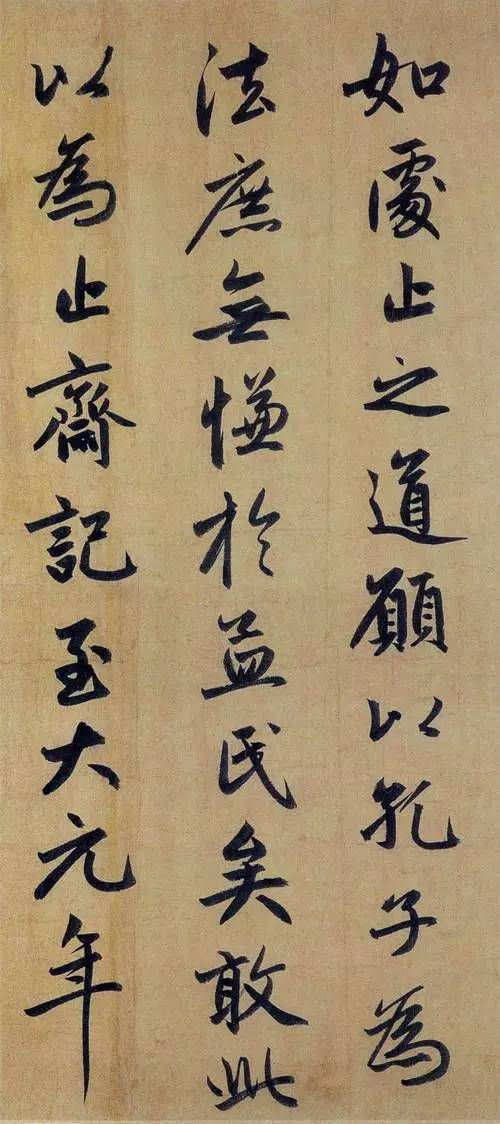 如處止之道願以孔子為
法庶無慊於益民矣敢此
以為止齋記至大元年